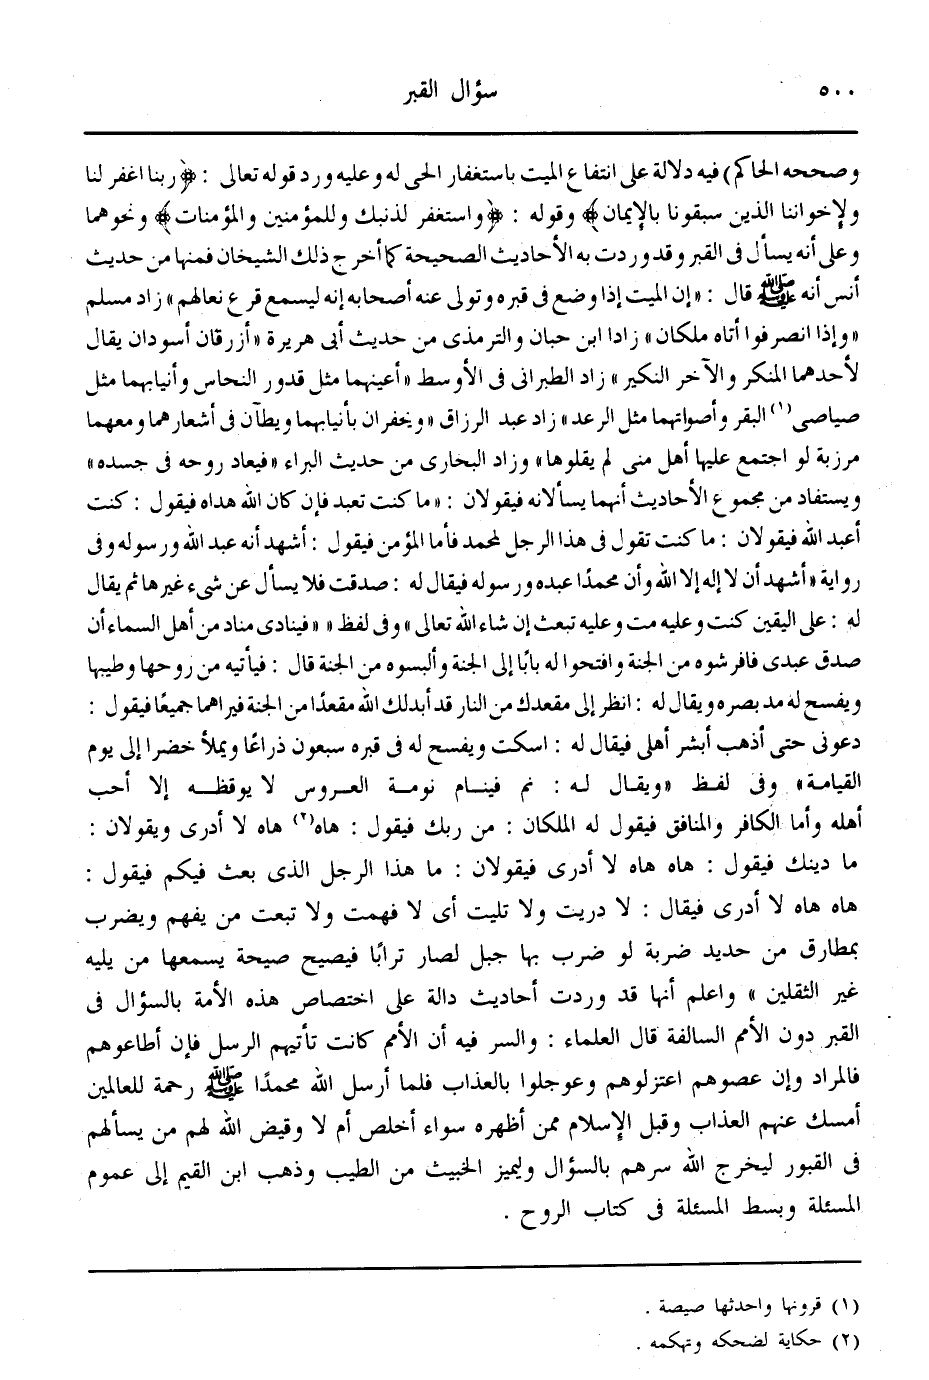 ٥٠٠
سؤال القبر
وصححه الحاكم) فيه دلالة على انتفاع الميت باستغفار الحى له وعليه ورد قوله تعالى : ﴿ربنا اغفر لنا
ولإخواننا الذين سبقونا بالإيمان﴾ وقوله : ﴿واستغفر لذنبك وللمؤمنين والمؤمنات﴾ ونحوهما
وعلى أنه يسأل فى القبر وقد وردت به الأحاديث الصحيحة كما أخرج ذلك الشيخان فمنها من حديث
أنس أنه ﷺ قال : «إن الميت إذا وضع فى قبره وتولى عنه أصحابه إنه ليسمع قرع نعالهم» زاد مسلم
«وإذا انصرفوا أتاه ملكان» زادا ابن حبان والترمذى من حديث أبى هريرة «أزرقان أسودان يقال
لأحدهما المنكر والآخر النكير» زاد الطبرانى فى الأوسط «أعينهما مثل قدور النحاس وأنيابهما مثل
صياصى(١) البقر وأصواتهما مثل الرعد» زاد عبد الرزاق «ويخفران بأنيابهما ويطآن فى أشعارهما ومعهما
مرزبة لو اجتمع عليها أهل منى لم يقلوها» وزاد البخارى من حديث البراء «فيعاد روحه فى جسده»
ويستفاد من مجموع الأحاديث أنهما يسألانه فيقولان : «ما كنت تعبد فإن كان الله هداه فيقول : كنت
أعبد الله فيقولان : ما كنت تقول فى هذا الرجل لمحمد فأما المؤمن فيقول : أشهد أنه عبد الله ورسوله وفى
رواية «أشهد أن لا إله إلا الله وأن محمدًا عبده ورسوله فيقال له : صدقت فلا يسأل عن شىء غيرها ثم يقال
له : على اليقين كنت وعليه مت وعليه تبعث إن شاء الله تعالى» وفى لفظ « «فينادى مناد من أهل السماء أن
صدق عبدى فافرشوه من الجنة وافتحوا له بابًا إلى الجنة وألبسوه من الجنة قال : فيأتيه من روحها وطيبها
ويفسح له مد بصره ويقال له : انظر إلى مقعدك من النار قد أبدلك الله مقعدًا من الجنة فيراهما جميعًا فيقول :
دعونى حتى أذهب أبشر أهلى فيقال له : اسكت ويفسح له فى قبره سبعون ذراعًا ويملأ خضرا إلى يوم
القيامة» وفى لفظ «ويقال له : نم فينام نومة العروس لا يوقظه إلا أحب
أهله وأما الكافر والمنافق فيقول له الملكان : من ربك فيقول : هاه(٢) هاه لا أدرى ويقولان :
ما دينك فيقول : هاه هاه لا أدرى فيقولان : ما هذا الرجل الذى بعث فيكم فيقول :
هاه هاه لا أدرى فيقال : لا دريت ولا تليت أى لا فهمت ولا تبعت من يفهم ويضرب
بمطارق من حديد ضربة لو ضرب بها جبل لصار ترابًا فيصيح صيحة يسمعها من يليه
غير الثقلين » واعلم أنها قد وردت أحاديث دالة على اختصاص هذه الأمة بالسؤال فى
القبر دون الأمم السالفة قال العلماء : والسر فيه أن الأمم كانت تأتيهم الرسل فإن أطاعوهم
فالمراد وإن عصوهم اعتزلوهم وعوجلوا بالعذاب فلما أرسل الله محمدًا ﷺ رحمة للعالمين
أمسك عنهم العذاب وقبل الإسلام ممن أظهره سواء أخلص أم لا وقيض الله لهم من يسألهم
فى القبور ليخرج الله سرهم بالسؤال وليميز الخبيث من الطيب وذهب ابن القيم إلى عموم
المسئلة وبسط المسئلة فى كتاب الروح .
(١) قرونها واحدثها صيصة .
(٢) حكاية لضحكه وتهكمه .